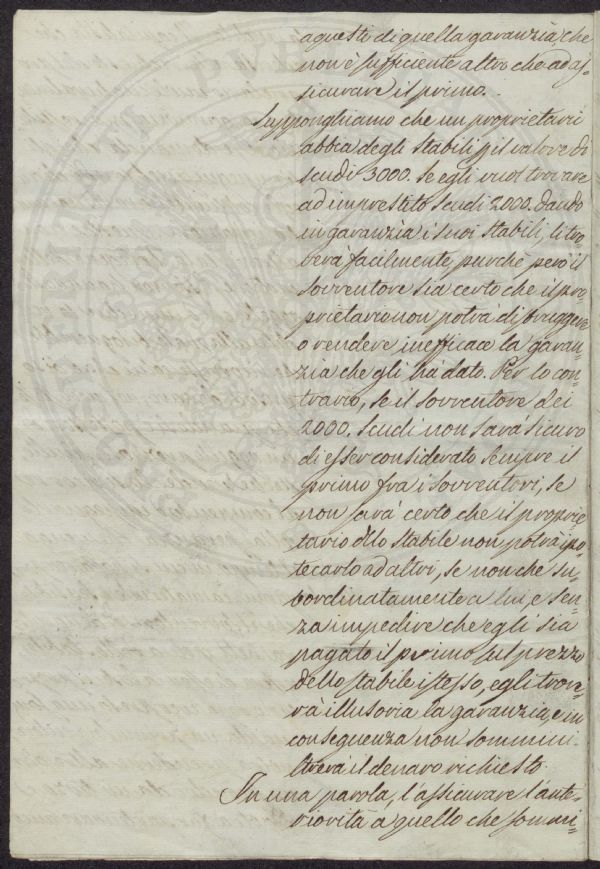 a questi di quella garanzia, che
non è sufficiente altro che ad as=
sicurare il primo.
Supponghiamo che un proprietari
abbia degli stabili p il valore di
scudi 3000. Se egli vuol trovare
ad imprestito scudi 2000. dando
in garanzia i suoi stabili, li tro=
verà facilmente, purchè però il
sovventore sia certo che il pro=
prietario non potrà distruggere
o rendere inefficace la garan=
zia che gli ha dato. Per lo con=
trario, se il sovventore dei
2000. scudi non sarà sicuro
di esser considerato sempre il
primo fra i sovventori, se
non sarà certo che il proprie=
tario dello stabile non potrà ipo=
tecarlo ad altri, se non che su=
bordinatamente a lui, e sen=
za impedire che egli sia
pagato il primo sul prezzo
dello stabile istesso, egli trove=
rà illusoria la garanzia, e in
conseguenza non sommini=
strerà il denaro richiesto.
In una parola, l'assicurare l'ante=
riorità a quello che sommi=